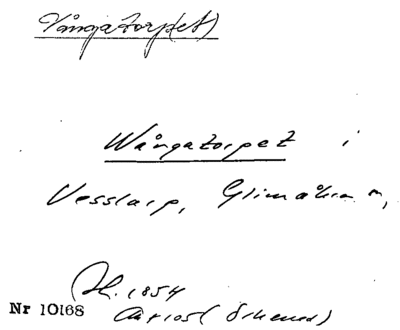 Vångatorp(et)
Wångatorpet i
Vesslarp, Glimåkra sn,
Hl. 1854
Nr 10168
Ar 105 (Östened)